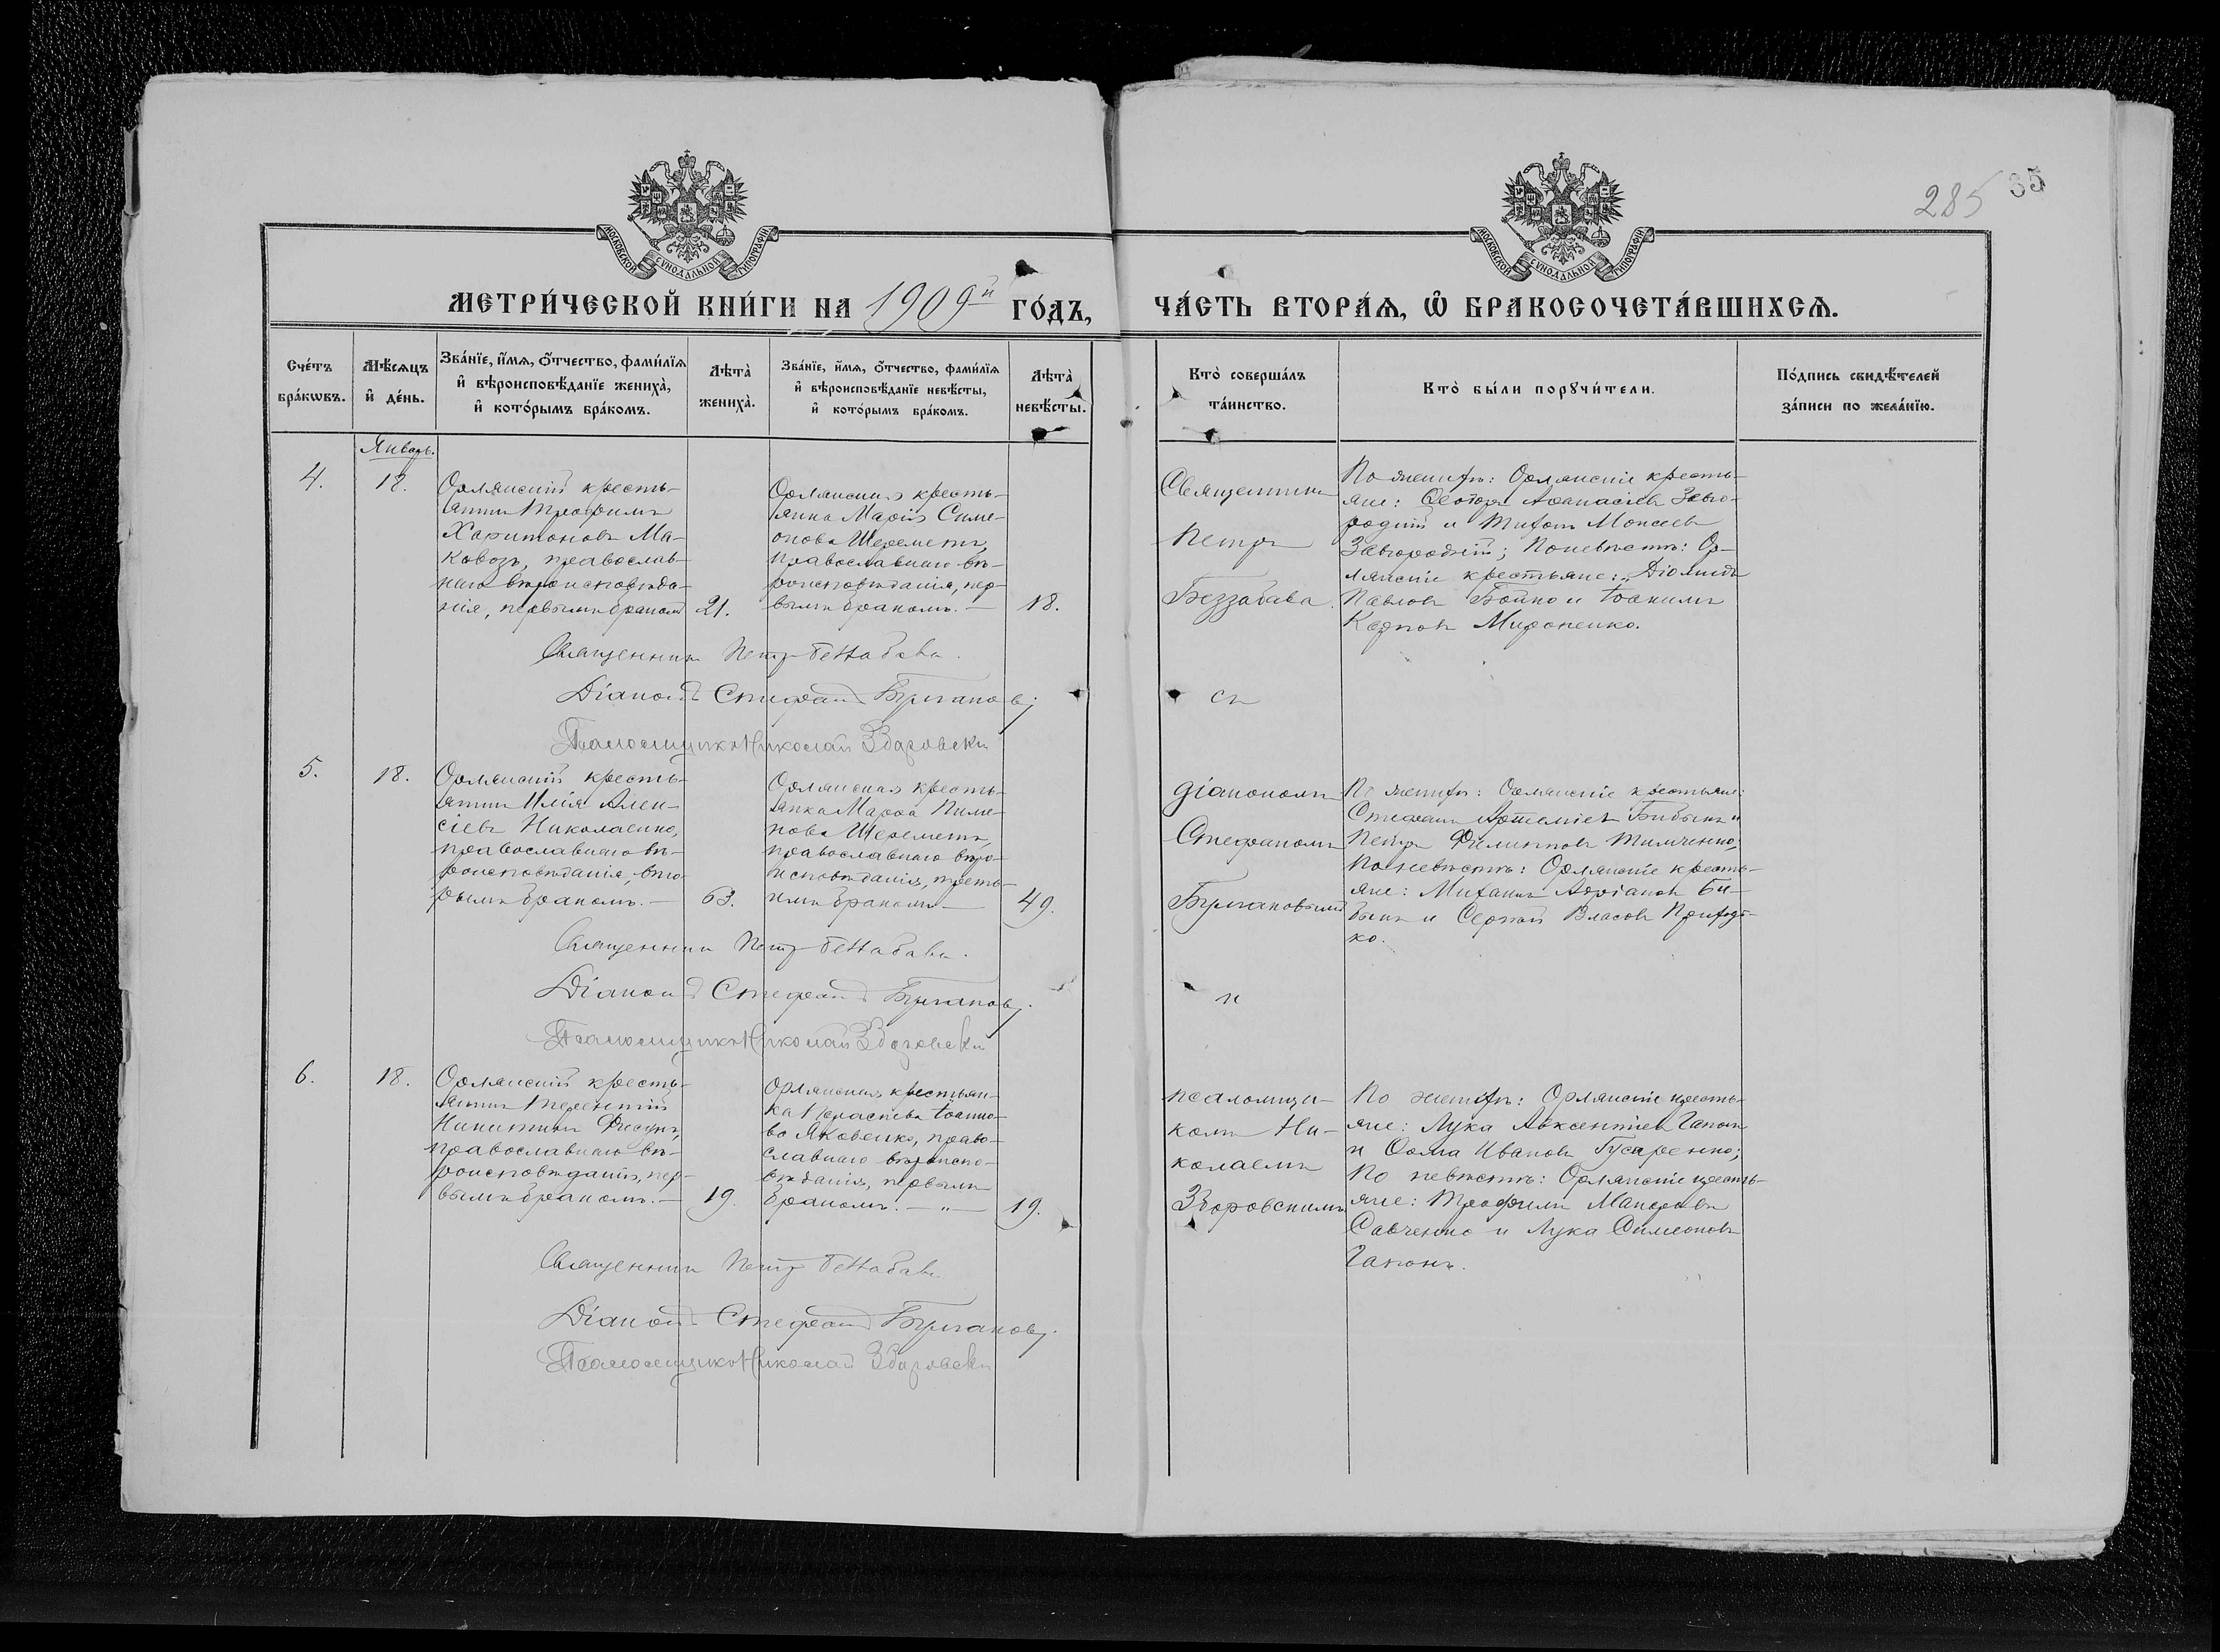 285 35
МОСКОВСКОЙ СѴНОДАЛЬНОЙ ТИПОГРАФІИ
МОСКОВСКОЙ СѴНОДАЛЬНОЙ ТИПОГРАФІИ
МЕТРИ́ЧЕСКОЙ КНИ́ГИ НА 1909й ГО́ДЪ,
ЧА́СТЬ ВТОРА́Ѧ, Ѽ БРАКОСОЧЕТА́ВШИХСѦ.
Сче́тъ
бра́кѡвъ.
Мѣ́сѧцъ
и҆ де́нь.
Зва́нїе, и҆́мѧ, ѻ҆́тчество, фами́лїѧ
и҆ вѣроисповѣ́данїе жениха̀,
и҆ кото́рымъ бра́комъ.
Лѣта̀
жениха̀.
Зва́нїе, и҆́мѧ, ѻ҆́тчество, фами́лїѧ
и҆ вѣроисповѣ́данїе невѣ́сты,
и҆ кото́рымъ бра́комъ.
Лѣта̀
невѣ́сты.
Кто̀ соверша́лъ
та́инство.
Кто̀ бы́ли порꙋчи́тели.
По́дпись свидѣ́телей
за́писи по жела́нїю.
Январь.
4.
18.
Орлянскій кресть-
янинъ Трофимъ
Харитоновъ Ма-
ковозъ, православ-
наго вѣроисповѣда-
нія, первымъ бракомъ
21.
Орлянская кресть-
янка Марія Симе-
онова Шереметъ,
православнаго вѣ-
роисповѣданія, пер-
вымъ бракомъ. —
18.
Священникъ
Петръ
Беззабава
По женихѣ: Орлянскіе кресть-
яне: Ѳеодоръ Аѳанасіевъ Заво-
родній и Титъ Моисеевъ
Завгородній; По невѣстѣ: Ор-
лянскіе крестьяне: Діомидъ
Павловъ Бойко и Іоакимъ
Карповъ Мироненко.
Священникъ Петръ Беззабава.
Діаконъ Стефанъ Булгаковъ;
Псаломщикъ Николай Здоровскій
съ
5.
18.
Орлянскій кресть-
янинъ Илія Алек-
сіевъ Николаенко,
православнаго вѣ-
роисповѣданія, вто-
рымъ бракомъ. —
63.
Орлянская кресть-
янка Марѳа Пиме-
нова Шереметъ,
православнаго вѣро-
исповѣданія, треть-
имъ бракомъ —
49.
діакономъ
Стефаномъ
Булгаковымъ
По женихѣ: Орлянскіе крестьяне:
Стефанъ Артеміевъ Бибыкъ и
Петръ Филипповъ Тимченко;
По невѣстѣ: Орлянскіе кресть-
яне: Михаилъ Адріановъ Би-
быкъ и Сергѣй Власовъ Приходь-
ко.
Священникъ Петръ Беззабава.
Діаконъ Стефанъ Булгаковъ.
Псаломщикъ Николай Здоровскій
и
6.
18.
Орлянскій кресть-
янинъ Терентій
Никитинъ Фисунъ,
православнаго вѣ-
роисповѣданія, пер-
вымъ бракомъ. —
19.
Орлянская крестьян-
ка Параскева Іоанно-
ва Яковенко, право-
славнаго вѣроиспо-
вѣданія, первымъ
бракомъ. — „ —
19.
псаломщи-
комъ Ни-
колаемъ
Здоровскимъ.
По женихѣ: Орлянскіе кресть-
яне: Лука Авксентіевъ Гапонъ
и Ѳома Ивановъ Гусаренко;
По невѣстѣ: Орлянскіе кресть-
яне: Трофимъ Макаровъ
Савченко и Лука Симеоновъ
Гапонъ.
Священникъ Петръ Беззабава
Діаконъ Стефанъ Булгаковъ.
Псаломщикъ Николай Здоровскій